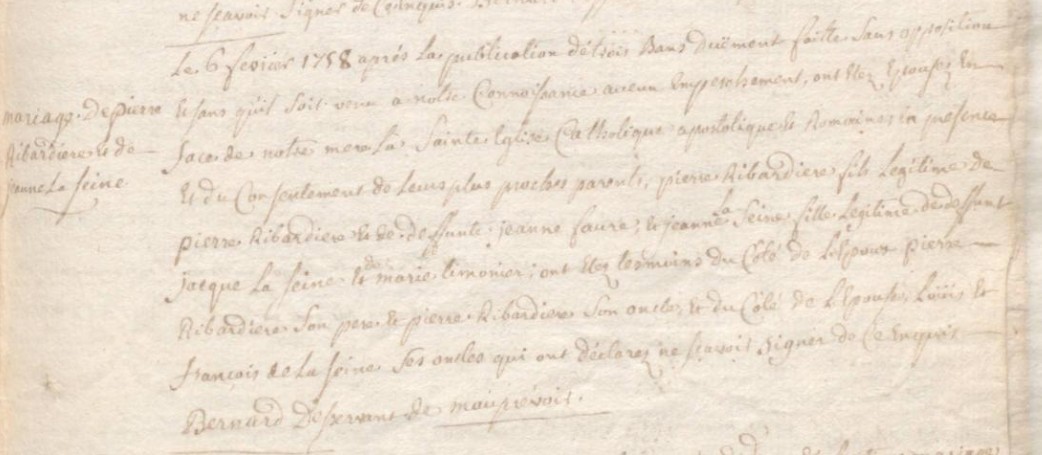 ne sçavoir signer de ce enquis.
Le 6 fevrier 1758 après la publication de trois Bans duëment faitte sans opposition
Mariage de pierre
Ribardiere et de
jeanne La Seine
et sans qu'il soit venu a notre Connoissance aucun Empeschement, ont Etez Epousez En
face de notre mere La Sainte Eglise Catholique apostolique et Romaine En presence
et du Consentement de Leurs plus proches parents, pierre Ribardiere fils Legitime de
pierre Ribardiere et de deffunte jeanne faure, et jeanne la Seine fille Legitime de deffunt
jacque La Seine et de marie limonier; ont Etez temoins du Côté de L'Epoux pierre
Ribardiere Son pere et pierre Ribardiere Son oncle, et du Côté de L'Epouse, Loüis et
françois de La Seine Ses oncles qui ont déclarez ne sçavoir signer de Ce Enquis
Bernard Desservant de mauprévoir.